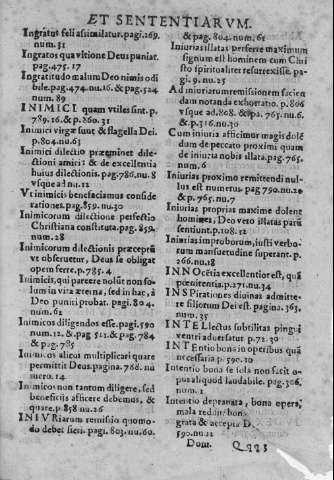 ET SENTENTIARVM.
Ingratus felli assimilatur. pagi. 269.
num. 31
Ingratos qua vltione Deus puniat.
pag. 475. 17
Ingratitudo malum Deo nimis odi
bile. pag. 474. nu. 16. & pag. 524
num. 89
INIMICI quam vtiles sint. p.
789. 16. & p. 860. 31
Inimici virgæ sunt & flagella Dei.
p. 804. nu. 63
Inimici dilectio præeminet dile-
ctioni amici: & de excellentia
huius dilectionis. pag. 786. nu. 8
vsque ad nu. 12
Vt inimicis benefaciamus conside
rationes. pag. 859. nu. 30
Inimicorum dilectione perfectio
Christiana constituta. pag. 859.
num. 28
Inimicorum dilectionis præceptũ
vt obseruetur, Deus se obligat
opem ferre. p. 785. 4
Inimicis, qui parcere nolũt non so-
lum in vita æterna, sed in hac, à
Deo puniri probat. pagi. 804.
num. 62
Inimicos diligendos esse. pagi. 590
num. 12. & pag 512. & pag. 784
& pag. 785
Inimicos alicui multiplicari quare
permittit Deus. pagina. 768. nu
mero. 14
Inimicos non tantum diligere, sed
beneficijs afficere debemus, &
quare. p. 858 nu. 26
INIVRiarum remissio quomo-
do debet fieri. pagi. 803. nu. 60.
& pag. 804. num. 61
Iniurias illatas perferre maximum
signum est hominem cum Chri
sto spiritualiter resurrexisse. pagi-
9. nu. 25
Ad iniuriarum remissionem facien
dam notanda exhortatio. p. 806
vsque ad. 808. & pa. 763. nu. 6.
& p. 516. nu. 30
Cum iniuria afficimur magis dolẽ
dum de peccato proximi quam
de iniuria nobis illata. pag. 765.
num. 6
Iniurias proximo remittendi nul-
lus est numerus. pag 790. nu. 20
& p. 765. nu. 7
Iniurias proprias maxime dolent
homines, Deo vero illatas parũ
sentiunt. p. 108. 12
Iniurias improborum, iusti verbo-
rum mansuetudine superant. p.
266. nu. 18
INNOcẽtia excellentior est, quã
pœnitentia. p. 271. nu. 34
INSPirationes diuinas admitte-
re filiorum Dei est. pagin. 363.
num. 35
INTELlectus subtilitas pingui
ventri aduersatur p. 72. 30
INTEntio bona in operibus quã
necessaria p. 590. 30
Intentio bona se sola non facit o-
pus aliquod laudabile. pag. 306.
num. 1
Intentio deprauata, bona opera,
mala reddit: bona
grata & accepta D
590. nu. 12
Dom. Qqq3